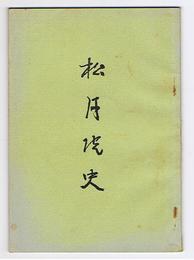 松月院史